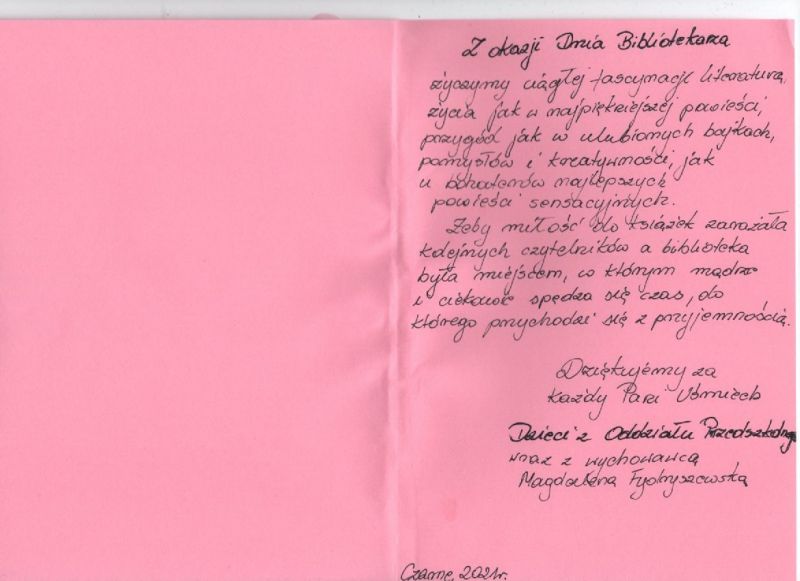 Z okazji Dnia Bibliotekarza
życzymy ciągłej fascynacji literaturą,
życia jak w najpiękniejszej powieści,
przygód jak w ulubionych bajkach,
pomysłów i kreatywności, jak
u bohaterów najlepszych
powieści sensacyjnych.
Żeby miłość do książek zarażała
kolejnych czytelników a biblioteka
była miejscem, w którym mądrze
i ciekawie spędza się czas, do
którego przychodzi się z przyjemnością.
Dziękujemy za
każdy Pani Uśmiech
Dzieci z Oddziału Przedszkolnego
wraz z wychowawcą
Magdaleną
Czarne, 2021r.